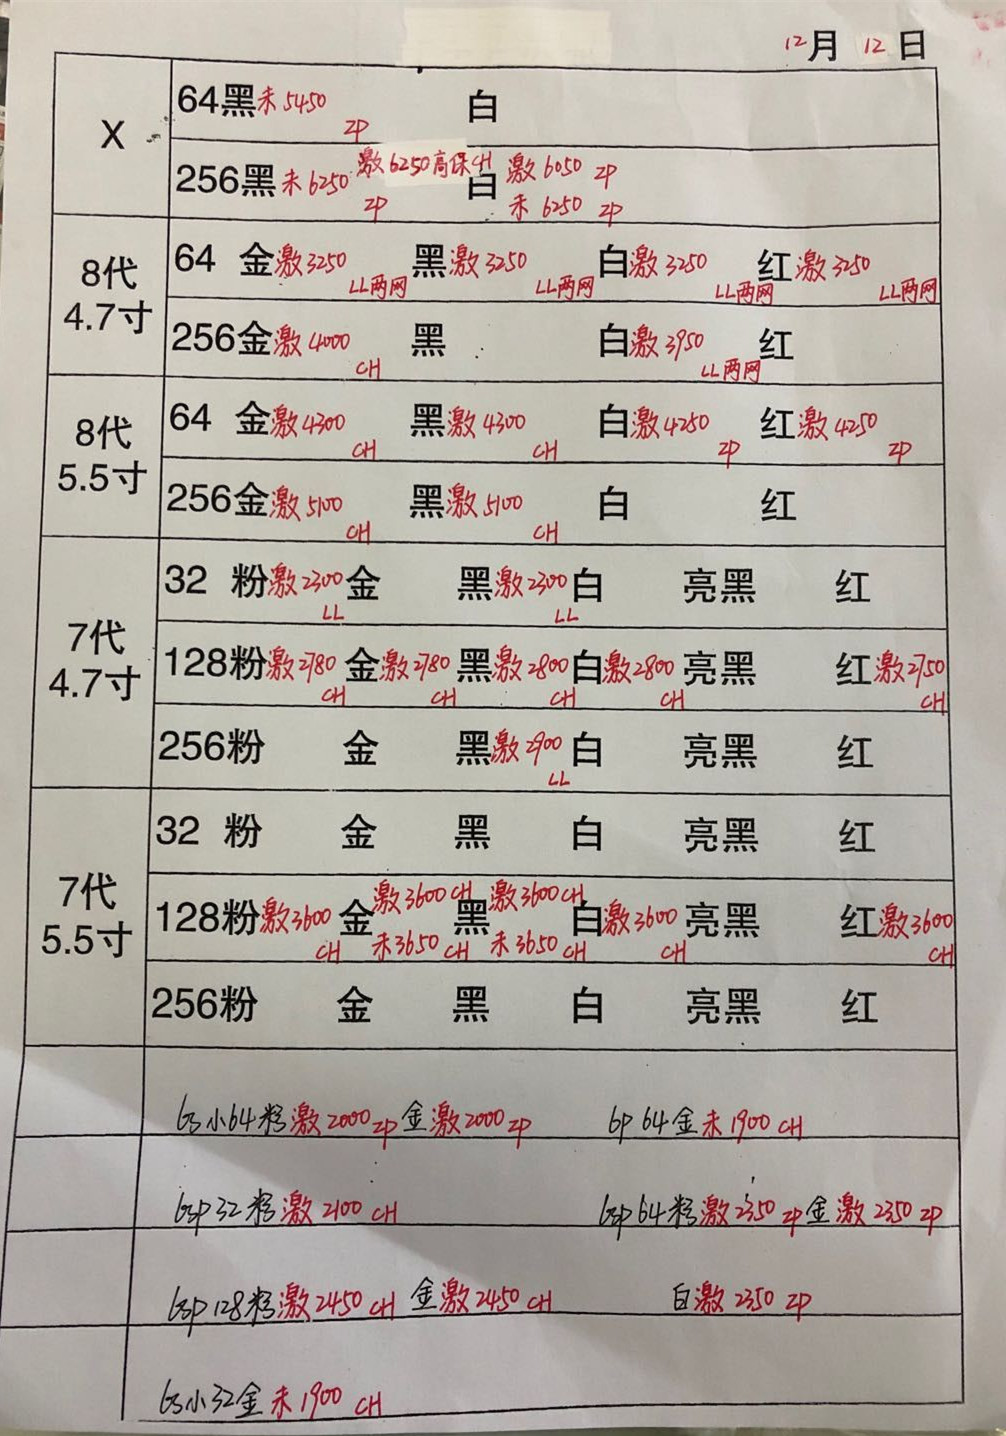 12月 12日
X
64黑未5450 ZP 白
256黑未6250 ZP 激6250高保CH 白 激6050 ZP
未6250 ZP
8代
4.7寸
64 金激3250 LL两网 黑激3250 LL两网 白激3250 LL两网 红激3250 LL两网
256金激4000 CH 黑 白激3950 LL两网 红
8代
5.5寸
64 金激4300 CH 黑激4300 CH 白激4250 ZP 红激4250 ZP
256金激5100 CH 黑激5100 CH 白 红
7代
4.7寸
32 粉激2300 LL 金 黑激2300 LL 白 亮黑 红
128粉激2780 CH 金激2780 CH 黑激2800 CH 白激2800 CH 亮黑 红激2750 CH
256粉 金 黑激2900 LL 白 亮黑 红
7代
5.5寸
32 粉 金 黑 白 亮黑 红
128粉激3600 CH 金激3600 CH 未3650 CH 黑激3600 CH 未3650 CH 白激3600 CH 亮黑 红激3600 CH
256粉 金 黑 白 亮黑 红
6s小64粉激2000 ZP 金激2000 ZP 6P 64金未1900 CH
6sp 32粉激2100 CH 6sp 64粉激2350 ZP 金激2350 ZP
6sp 128粉激2450 CH 金激2450 CH 白激2350 ZP
6s小32金未1900 CH